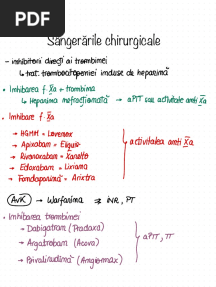 PDF
Sângerările chirurgicale
– inhibitorii direcți ai trombinei
↳ trat. trombocitopeniei induse de heparină
• Inhibarea f. Xa + trombina
↳ Heparina nefracționată → aPTT sau activitate anti Xa
• Inhibare f. Xa
→ HGMM = Lovenox
→ Apixaban = Eliquis
→ Rivaroxaban = Xarelto
→ Edoxaban = Lixiana
→ Fondaparinux = Arixtra
activitatea anti Xa
AVK → Warfarina ⇒ INR, PT
• Inhibarea trombinei
→ Dabigatran (Pradaxa)
→ Argatroban (Acova)
→ Bivalirudina (Angiomax)
aPTT, TT